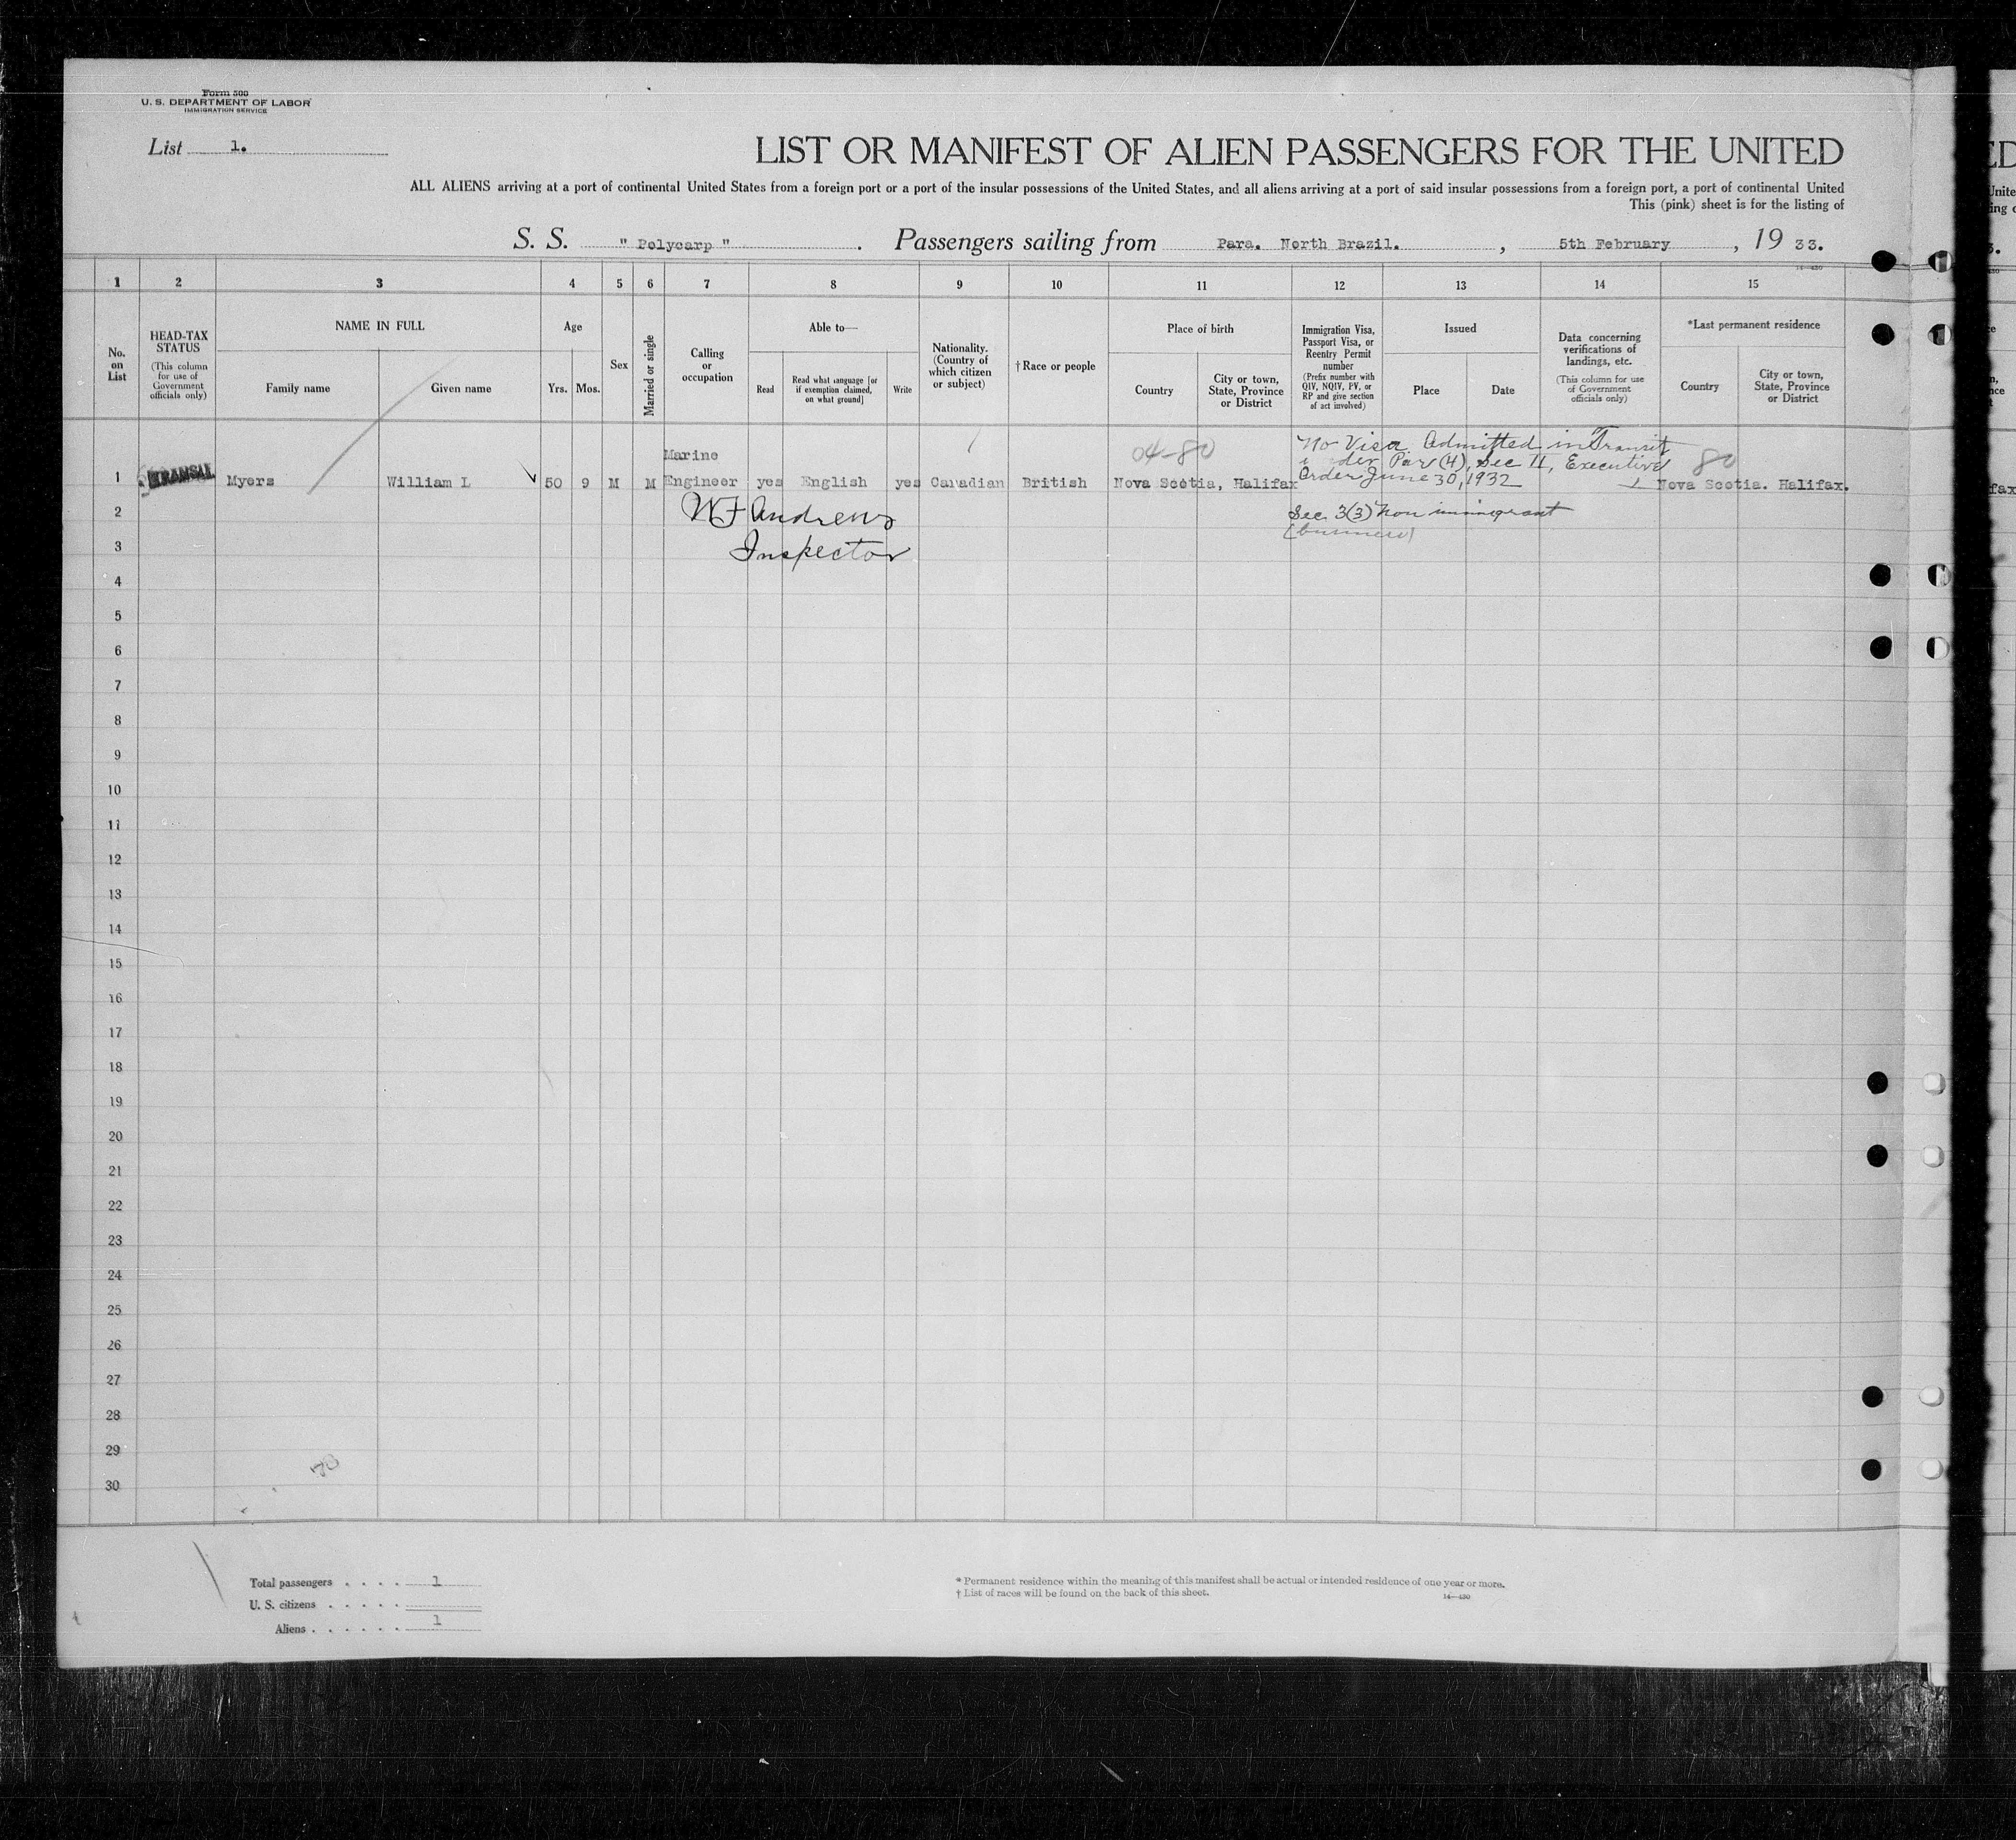 Form 500
U. S. DEPARTMENT OF LABOR
IMMIGRATION SERVICE
List 1.
LIST OR MANIFEST OF ALIEN PASSENGERS FOR THE UNITED
ALL ALIENS arriving at a port of continental United States from a foreign port or a port of the insular possessions of the United States, and all aliens arriving at a port of said insular possessions from a foreign port, a port of continental United
This (pink) sheet is for the listing of
S. S. " Polycarp " . Passengers sailing from Para. North Brazil. , 5th February , 19 33.
1 2 3 4 5 6 7 8 9 10 11 12 13 14 15
No. on List
HEAD-TAX STATUS
(This column for use of Government officials only)
NAME IN FULL
Family name
Given name
Age
Yrs.
Mos.
Sex
Married or single
Calling or occupation
Able to—
Read
Read what language [or if exemption claimed, on what ground]
Write
Nationality. (Country of which citizen or subject)
† Race or people
Place of birth
Country
City or town, State, Province or District
Immigration Visa, Passport Visa, or Reentry Permit number
(Prefix number with QIV, NQIV, PV, or RP and give section of act involved)
Issued
Place
Date
Data concerning verifications of landings, etc.
(This column for use of Government officials only)
*Last permanent residence
Country
City or town, State, Province or District
04-80
No Visa Admitted in Transit
under Par (4), Sec II, Executive
Order June 30, 1932
80
1 Myers William L 50 9 M M Marine Engineer yes English yes Canadian British Nova Scotia, Halifax Nova Scotia. Halifax.
2 WF Andrews Sec. 3(3) Non immigrant
(business)
3 Inspector
4
5
6
7
8
9
10
11
12
13
14
15
16
17
18
19
20
21
22
23
24
25
26
27
28
29
30
Total passengers . . . . 1
U. S. citizens . . . . .
Aliens . . . . . . 1
* Permanent residence within the meaning of this manifest shall be actual or intended residence of one year or more.
† List of races will be found on the back of this sheet.
14—430